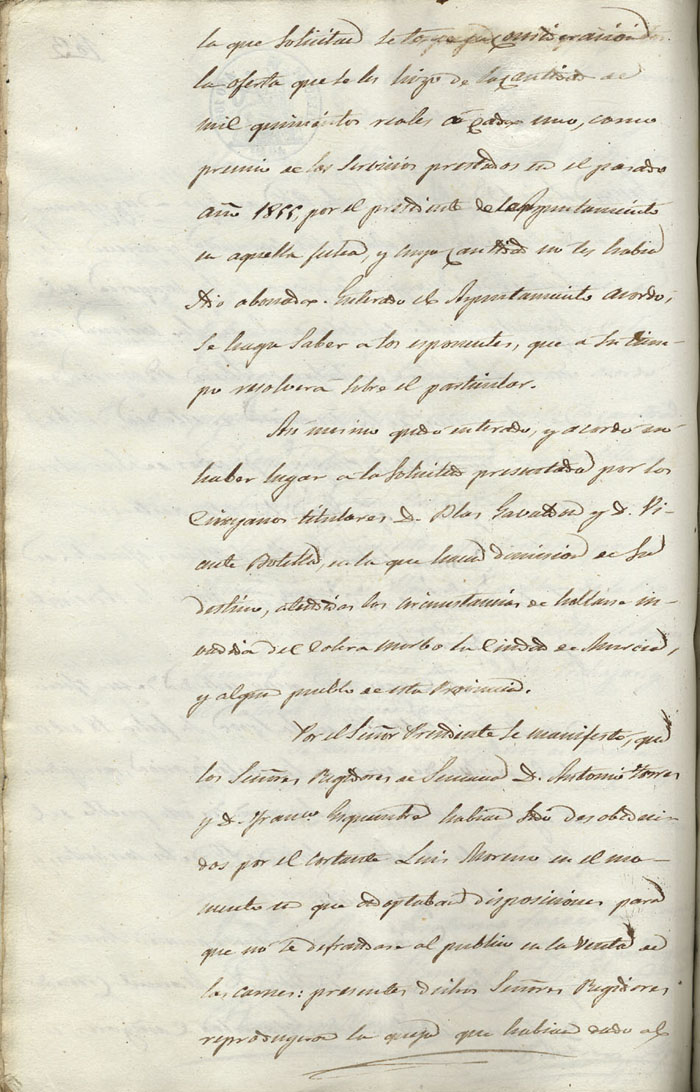 la que solicitan se tome en consideracion
la oferta que se les hizo de la cantidad de
mil quinientos reales á cada uno, como
premio de los servicios prestados en el pasado
año 1855, por el presidente del Ayuntamiento
en aquella fecha, y cuya cantidad no les habia
sido abonada. Enterado el Ayuntamiento acordó,
se haga saber a los esponentes, que a su tiem-
po resolvera sobre el particular.
Asi mismo quedó enterado, y acordó no
haber lugar a la solicitud presentada por los
Cirujanos titulares D. Blas y D. Vi-
cente Botella, en la que hacen dimision de su
destino, atendidas las circunstancias de hallarse in-
vadida del Colera morbo la Ciudad de Murcia,
y algun pueblo de esta Provincia.
Por el Señor Presidente se manifestó, que
los Señores Regidores de Semana D. Antonio Torres
y D. Franco. Esquembre habian sido desobedeci-
dos por el cortante Luis Moreno en el mo-
mento en que adoptaban disposiciones para
que no se defraudase al publico en la venta de
las carnes: presentes dichos Señores Regidores
reprodugeron la queja que habian dado al